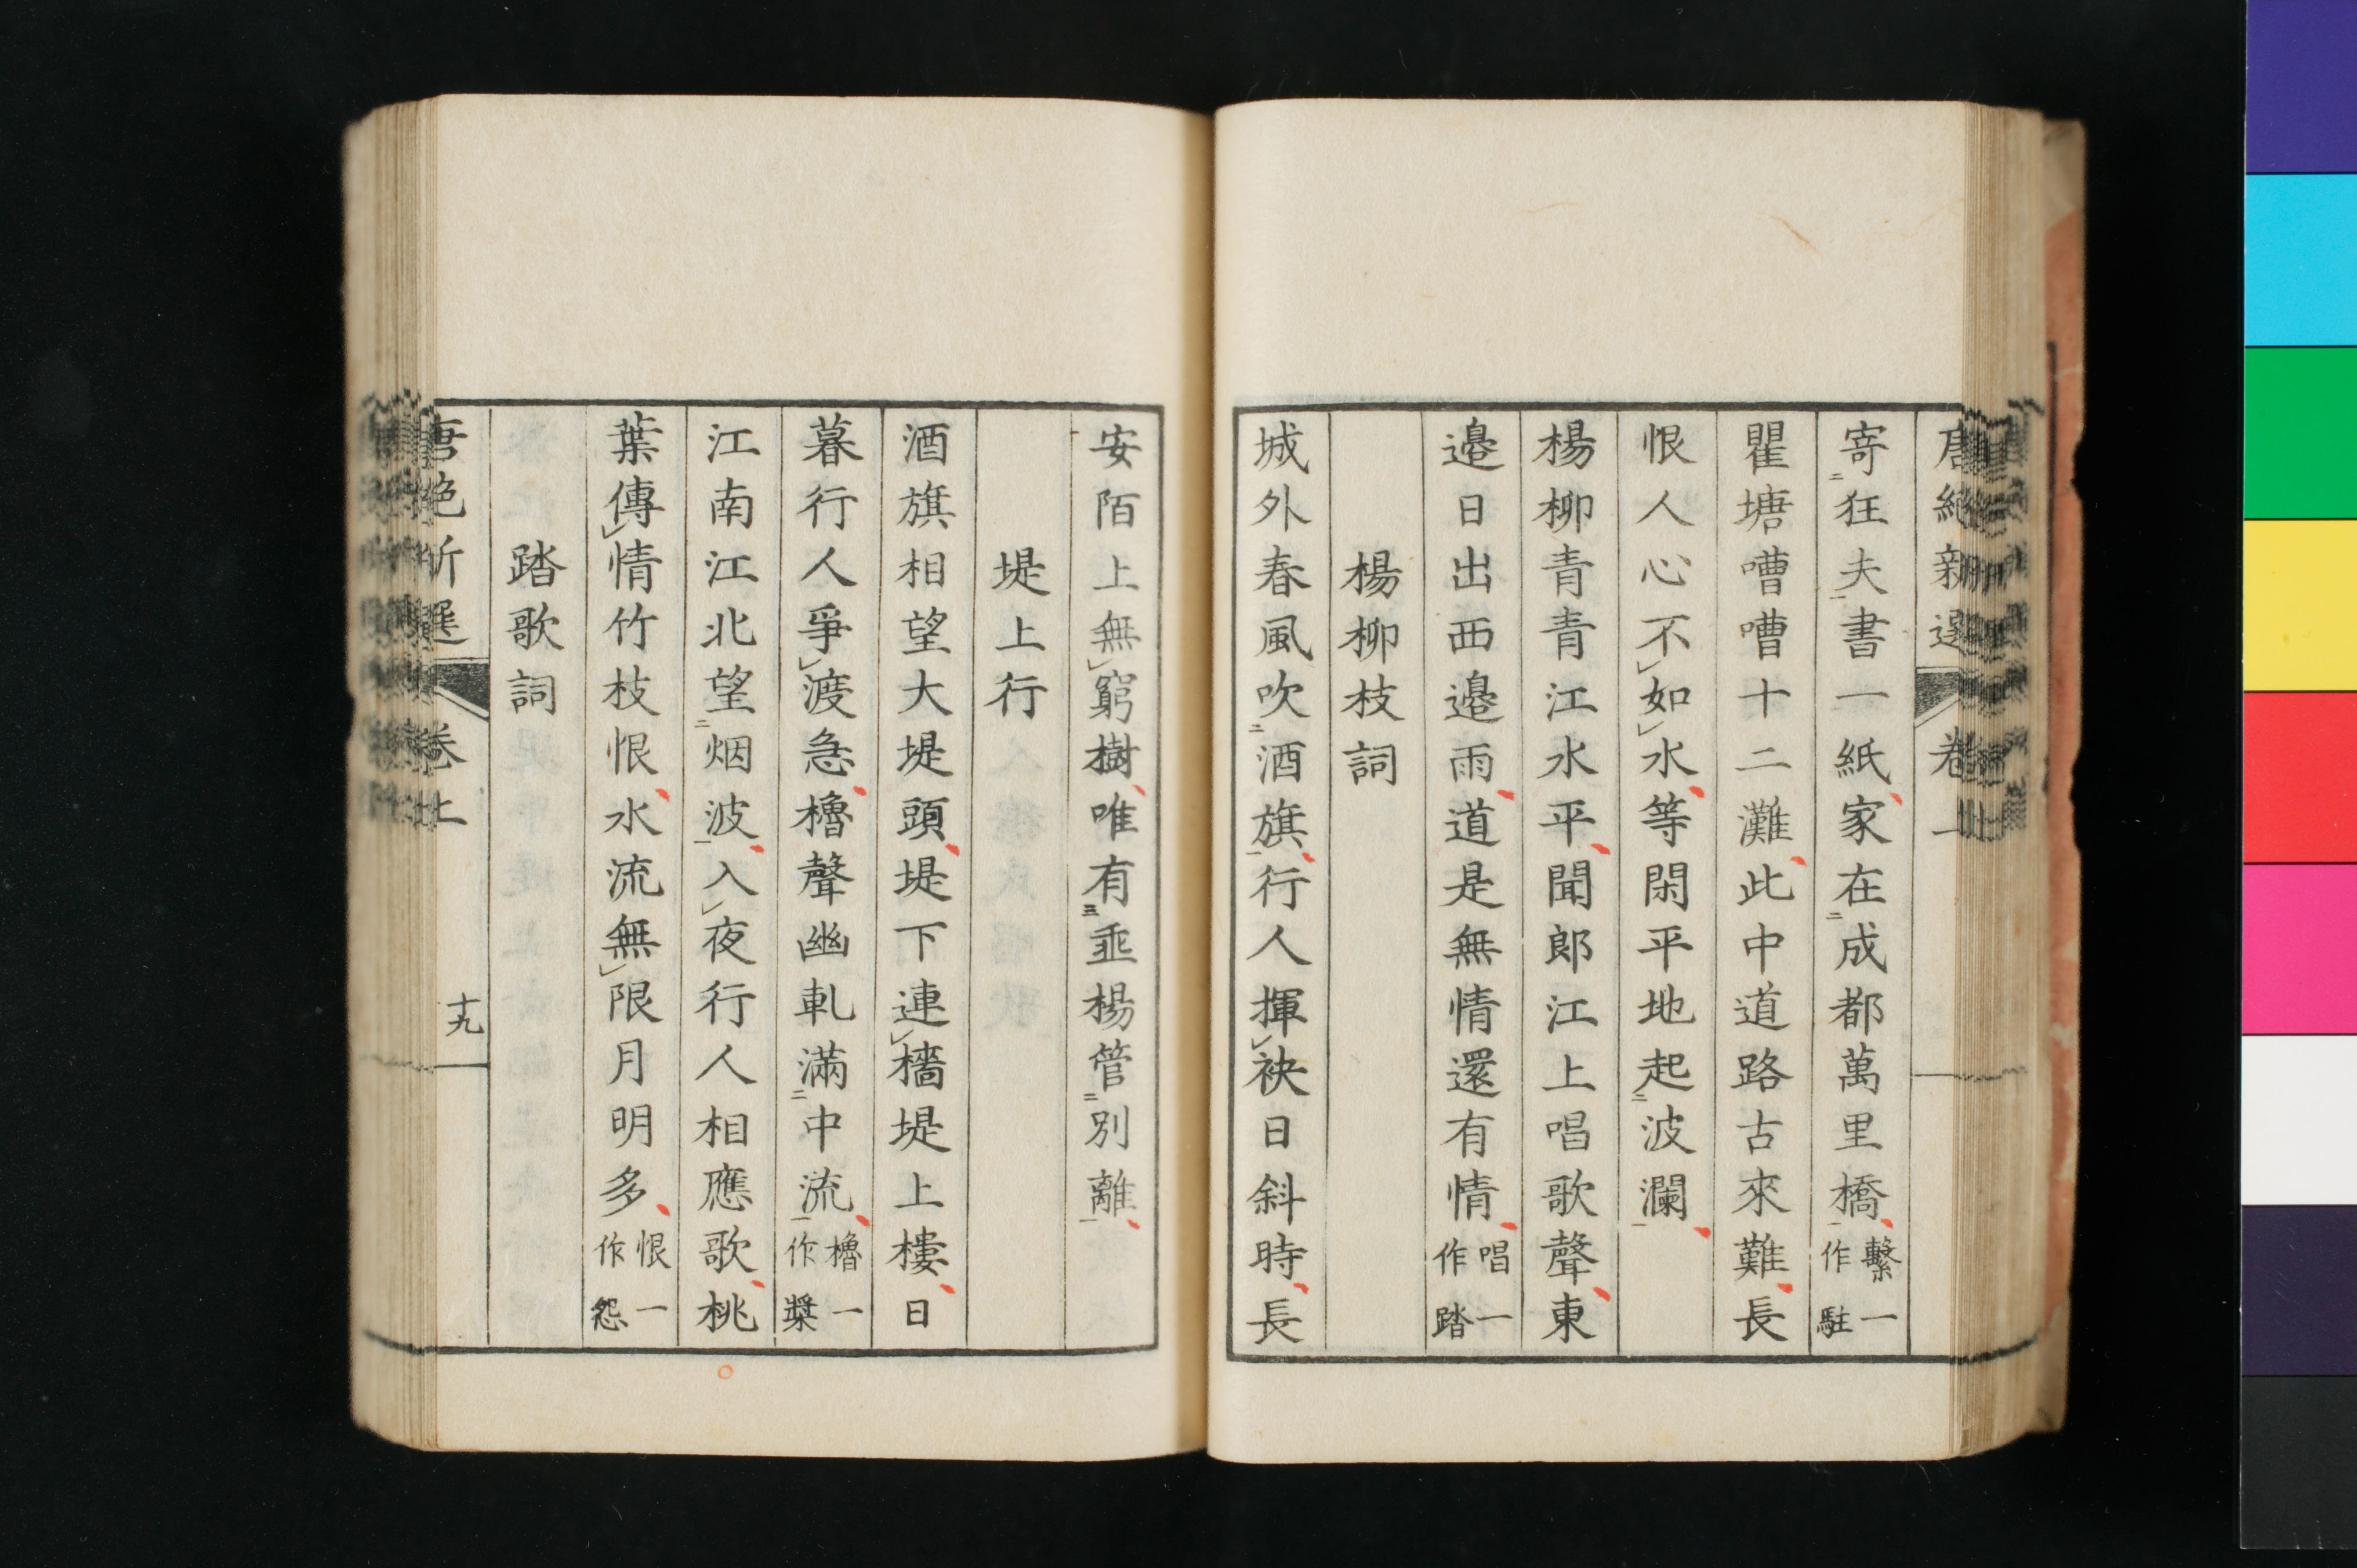 寄狂夫書一紙家在成都萬里橋繫一作駐
瞿塘嘈嘈十二灘此中道路古來難長
恨人心不如水等閑平地起波瀾
楊柳青青江水平聞郎江上唱歌聲東
邉日出西邉雨道是無情還有情唱一作踏
楊柳枝詞
城外春風吹酒旗行人揮袂日斜時長
安陌上無窮樹唯有垂楊管別離
堤上行
酒旗相望大堤頭堤下連檣堤上樓日
暮行人爭渡急櫓聲幽軋滿中流櫓一作槳
江南江北望烟波入夜行人相應歌桃
葉傳情竹枝恨水流無限月明多恨一作怨
踏歌詞
唐絶新選 卷上 十九